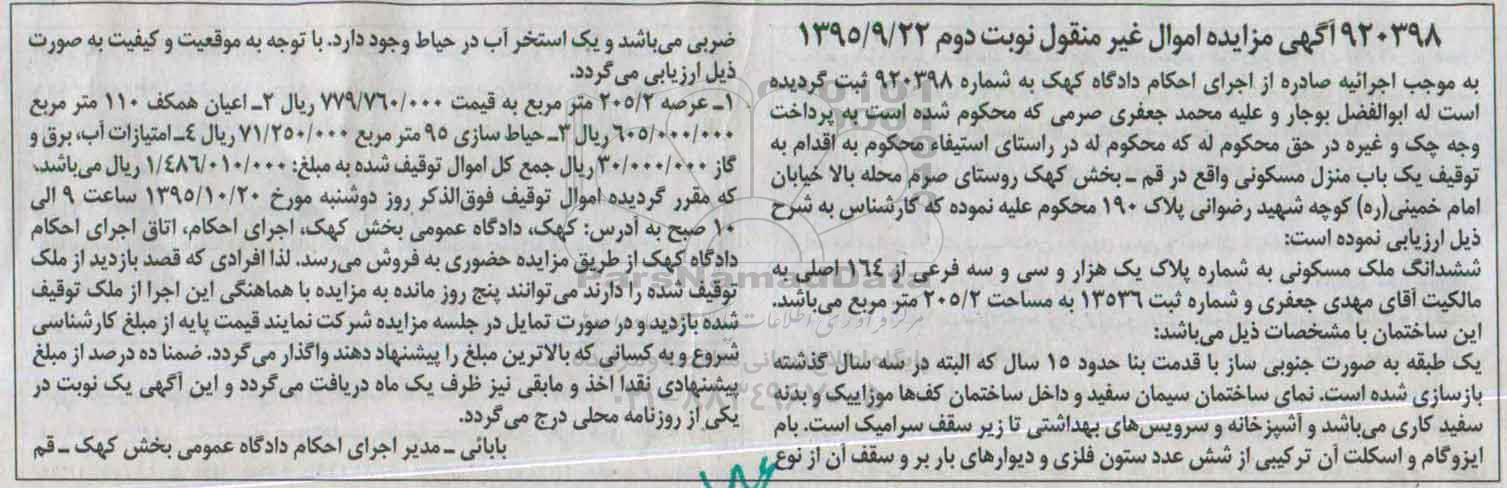 ۹۲۰۳۹۸ آگهی مزایده اموال غیر منقول نوبت دوم ۱۳۹۵/۹/۲۲
به موجب اجرائیه صادره از اجرای احکام دادگاه کهک به شماره ۹۲۰۳۹۸ ثبت گردیده
است له ابوالفضل بوجار و علیه محمد جعفری صرمی که محکوم شده است به پرداخت
وجه چک و غیره در حق محکوم له که محکوم له در راستای استیفاء محکوم به اقدام به
توقیف یک باب منزل مسکونی واقع در قم ـ بخش کهک روستای صرم محله بالا خیابان
امام خمینی(ره) کوچه شهید رضوانی پلاک ۱۹۰ محکوم علیه نموده که کارشناس به شرح
ذیل ارزیابی نموده است:
ششدانگ ملک مسکونی به شماره پلاک یک هزار و سی و سه فرعی از ۱۶۴ اصلی به
مالکیت آقای مهدی جعفری و شماره ثبت ۱۳۵۳۶ به مساحت ۲۰۵/۲ متر مربع می‌باشد.
این ساختمان با مشخصات ذیل می‌باشد:
یک طبقه به صورت جنوبی ساز با قدمت بنا حدود ۱۵ سال که البته در سه سال گذشته
بازسازی شده است. نمای ساختمان سیمان سفید و داخل ساختمان کف‌ها موزاییک و بدنه
سفید کاری می‌باشد و آشپزخانه و سرویس‌های بهداشتی تا زیر سقف سرامیک است. بام
ایزوگام و اسکلت آن ترکیبی از شش عدد ستون فلزی و دیوارهای بار بر و سقف آن از نوع
ضربی می‌باشد و یک استخر آب در حیاط وجود دارد. با توجه به موقعیت و کیفیت به صورت
ذیل ارزیابی می‌گردد.
۱ـ عرصه ۲۰۵/۲ متر مربع به قیمت ۷۷۹/۷۶۰/۰۰۰ ریال ۲ـ اعیان همکف ۱۱۰ متر مربع
۶۰۵/۰۰۰/۰۰۰ ریال ۳ـ حیاط سازی ۹۵ متر مربع ۷۱/۲۵۰/۰۰۰ ریال ۴ـ امتیازات آب، برق و
گاز ۳۰/۰۰۰/۰۰۰ ریال جمع کل اموال توقیف شده به مبلغ: ۱/۴۸۶/۰۱۰/۰۰۰ ریال می‌باشد.
که مقرر گردیده اموال توقیف فوق‌الذکر روز دوشنبه مورخ ۱۳۹۵/۱۰/۲۰ ساعت ۹ الی
۱۰ صبح به آدرس: کهک، دادگاه عمومی بخش کهک، اجرای احکام، اتاق اجرای احکام
دادگاه کهک از طریق مزایده حضوری به فروش می‌رسد. لذا افرادی که قصد بازدید از ملک
توقیف شده را دارند می‌توانند پنج روز مانده به مزایده با هماهنگی این اجرا از ملک توقیف
شده بازدید و در صورت تمایل در جلسه مزایده شرکت نمایند قیمت پایه از مبلغ کارشناسی
شروع و به کسانی که بالاترین مبلغ را پیشنهاد دهند واگذار می‌گردد. ضمنا ده درصد از مبلغ
پیشنهادی نقدا اخذ و مابقی نیز ظرف یک ماه دریافت می‌گردد و این آگهی یک نوبت در
یکی از روزنامه محلی درج می‌گردد.
بابائی ـ مدیر اجرای احکام دادگاه عمومی بخش کهک ـ قم
ParsNamadData